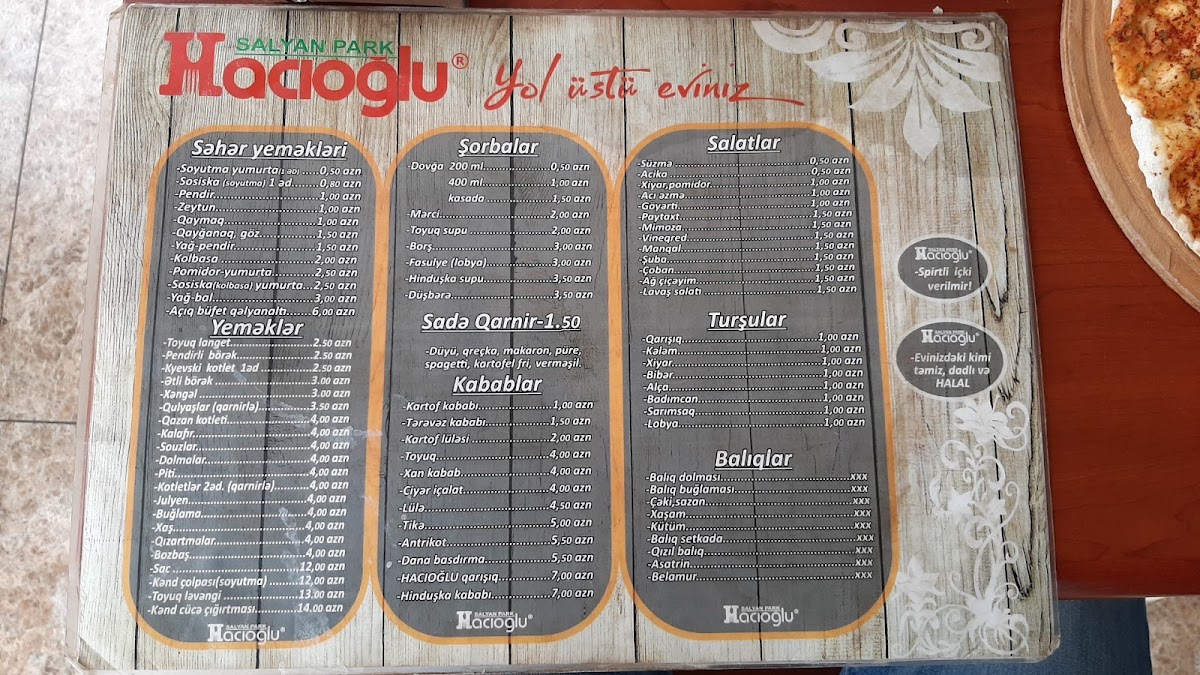 SALYAN PARK
Hacıoğlu®
Yol üstü eviniz
Səhər yeməkləri
-Soyutma yumurta(1 əd)......0,50 azn
-Sosiska (soyutma) 1 əd......0,80 azn
-Pendir......1,00 azn
-Zeytun......1,00 azn
-Qaymaq......1,00 azn
-Qayğanaq, göz......1,50 azn
-Yağ-pendir......1,50 azn
-Kolbasa......2,00 azn
-Pomidor-yumurta......2,50 azn
-Sosiska(kolbasa) yumurta......2,50 azn
-Yağ-bal......3,00 azn
-Açıq büfet qəlyanaltı......6,00 azn
Yeməklər
-Toyuq langet......2.50 azn
-Pendirli börək......2.50 azn
-Kyevski kotlet 1əd......2.50 azn
-Ətli börək......3.00 azn
-Xəngəl......3.00 azn
-Qulyaşlar (qarnirlə)......3.50 azn
-Qazan kotleti......4,00 azn
-Kalafır......4,00 azn
-Souzlar......4,00 azn
-Dolmalar......4,00 azn
-Piti......4,00 azn
-Kotletlər 2əd. (qarnirlə)......4,00 azn
-Julyen......4,00 azn
-Buğlama......4,00 azn
-Xaş......4,00 azn
-Qızartmalar......4,00 azn
-Bozbaş......4,00 azn
-Sac......12,00 azn
-Kənd çolpası(soyutma)......12,00 azn
-Toyuq ləvəngi......13.00 azn
-Kənd cücə çığırtması......14.00 azn
SALYAN PARK
Hacıoğlu®
Şorbalar
-Dovğa 200 ml......0,50 azn
400 ml......1,00 azn
kasada......1,50 azn
-Mərci......2,00 azn
-Toyuq supu......2,00 azn
-Borş......3,00 azn
-Fasulye (lobya)......3,00 azn
-Hinduşka supu......3,50 azn
-Düşbərə......3,50 azn
Sadə Qarnir-1.50
-Düyü, qreçko, makaron, püre,
spagetti, kartofel fri, verməşil.
Kabablar
-Kartof kababı......1,00 azn
-Tərəvəz kababı......1,50 azn
-Kartof lüləsi......2,00 azn
-Toyuq......4,00 azn
-Xan kabab......4,00 azn
-Ciyər içalat......4,00 azn
-Lülə......4,50 azn
-Tikə......5,00 azn
-Antrikot......5,50 azn
-Dana basdırma......5,50 azn
-HACIOĞLU qarışıq......7,00 azn
-Hinduşka kababı......7,00 azn
SALYAN PARK
Hacıoğlu®
Salatlar
-Süzmə......0,50 azn
-Acika......0,50 azn
-Xiyar,pomidor......1,00 azn
-Acı əzmə......1,00 azn
-Göyərti......1,00 azn
-Paytaxt......1,50 azn
-Mimoza......1,50 azn
-Vineqred......1,50 azn
-Manqal......1,50 azn
-Şuba......1,50 azn
-Çoban......1,50 azn
-Ağ çiçəyim......1,50 azn
-Lavaş salatı......1,50 azn
Turşular
-Qarışıq......1,00 azn
-Kələm......1,00 azn
-Xiyar......1,00 azn
-Bibər......1,00 azn
-Alça......1,00 azn
-Badımcan......1,00 azn
-Sarımsaq......1,00 azn
-Lobya......1,00 azn
Balıqlar
-Balıq dolması......xxx
-Balıq buğlaması......xxx
-Çəki,sazan......xxx
-Xaşam......xxx
-Kütüm......xxx
-Balıq setkada......xxx
-Qızıl balıq......xxx
-Asatrin......xxx
-Belamur......xxx
SALYAN PARK
Hacıoğlu®
SALYAN PARK
Hacıoğlu®
-Spirtli içki
verilmir!
SALYAN PARK
Hacıoğlu®
-Evinizdəki kimi
təmiz, dadlı və
HALAL